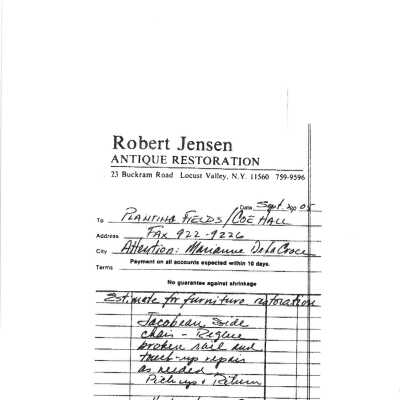 Robert Jensen
ANTIQUE RESTORATION
23 Buckram Road Locust Valley, N.Y. 11560 759-9596
Date Sept. 05
To PLANTING FIELDS / COE HALL
Address FAX 922-9226
City Attention: Marianne DelaCroce
Payment on all accounts expected within 10 days.
Terms
No guarantee against shrinkage
Estimate for furniture restoration
Jacobean Side
chair - Reglue
broken rail and
touch-up repair
as needed
Pick up + Return